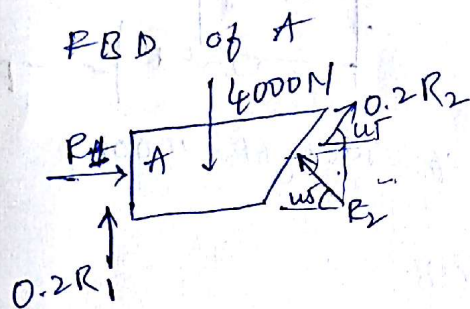 FBD of A
4000N
0.2R₂
45
R₁
A
45
R₂
0.2R₁